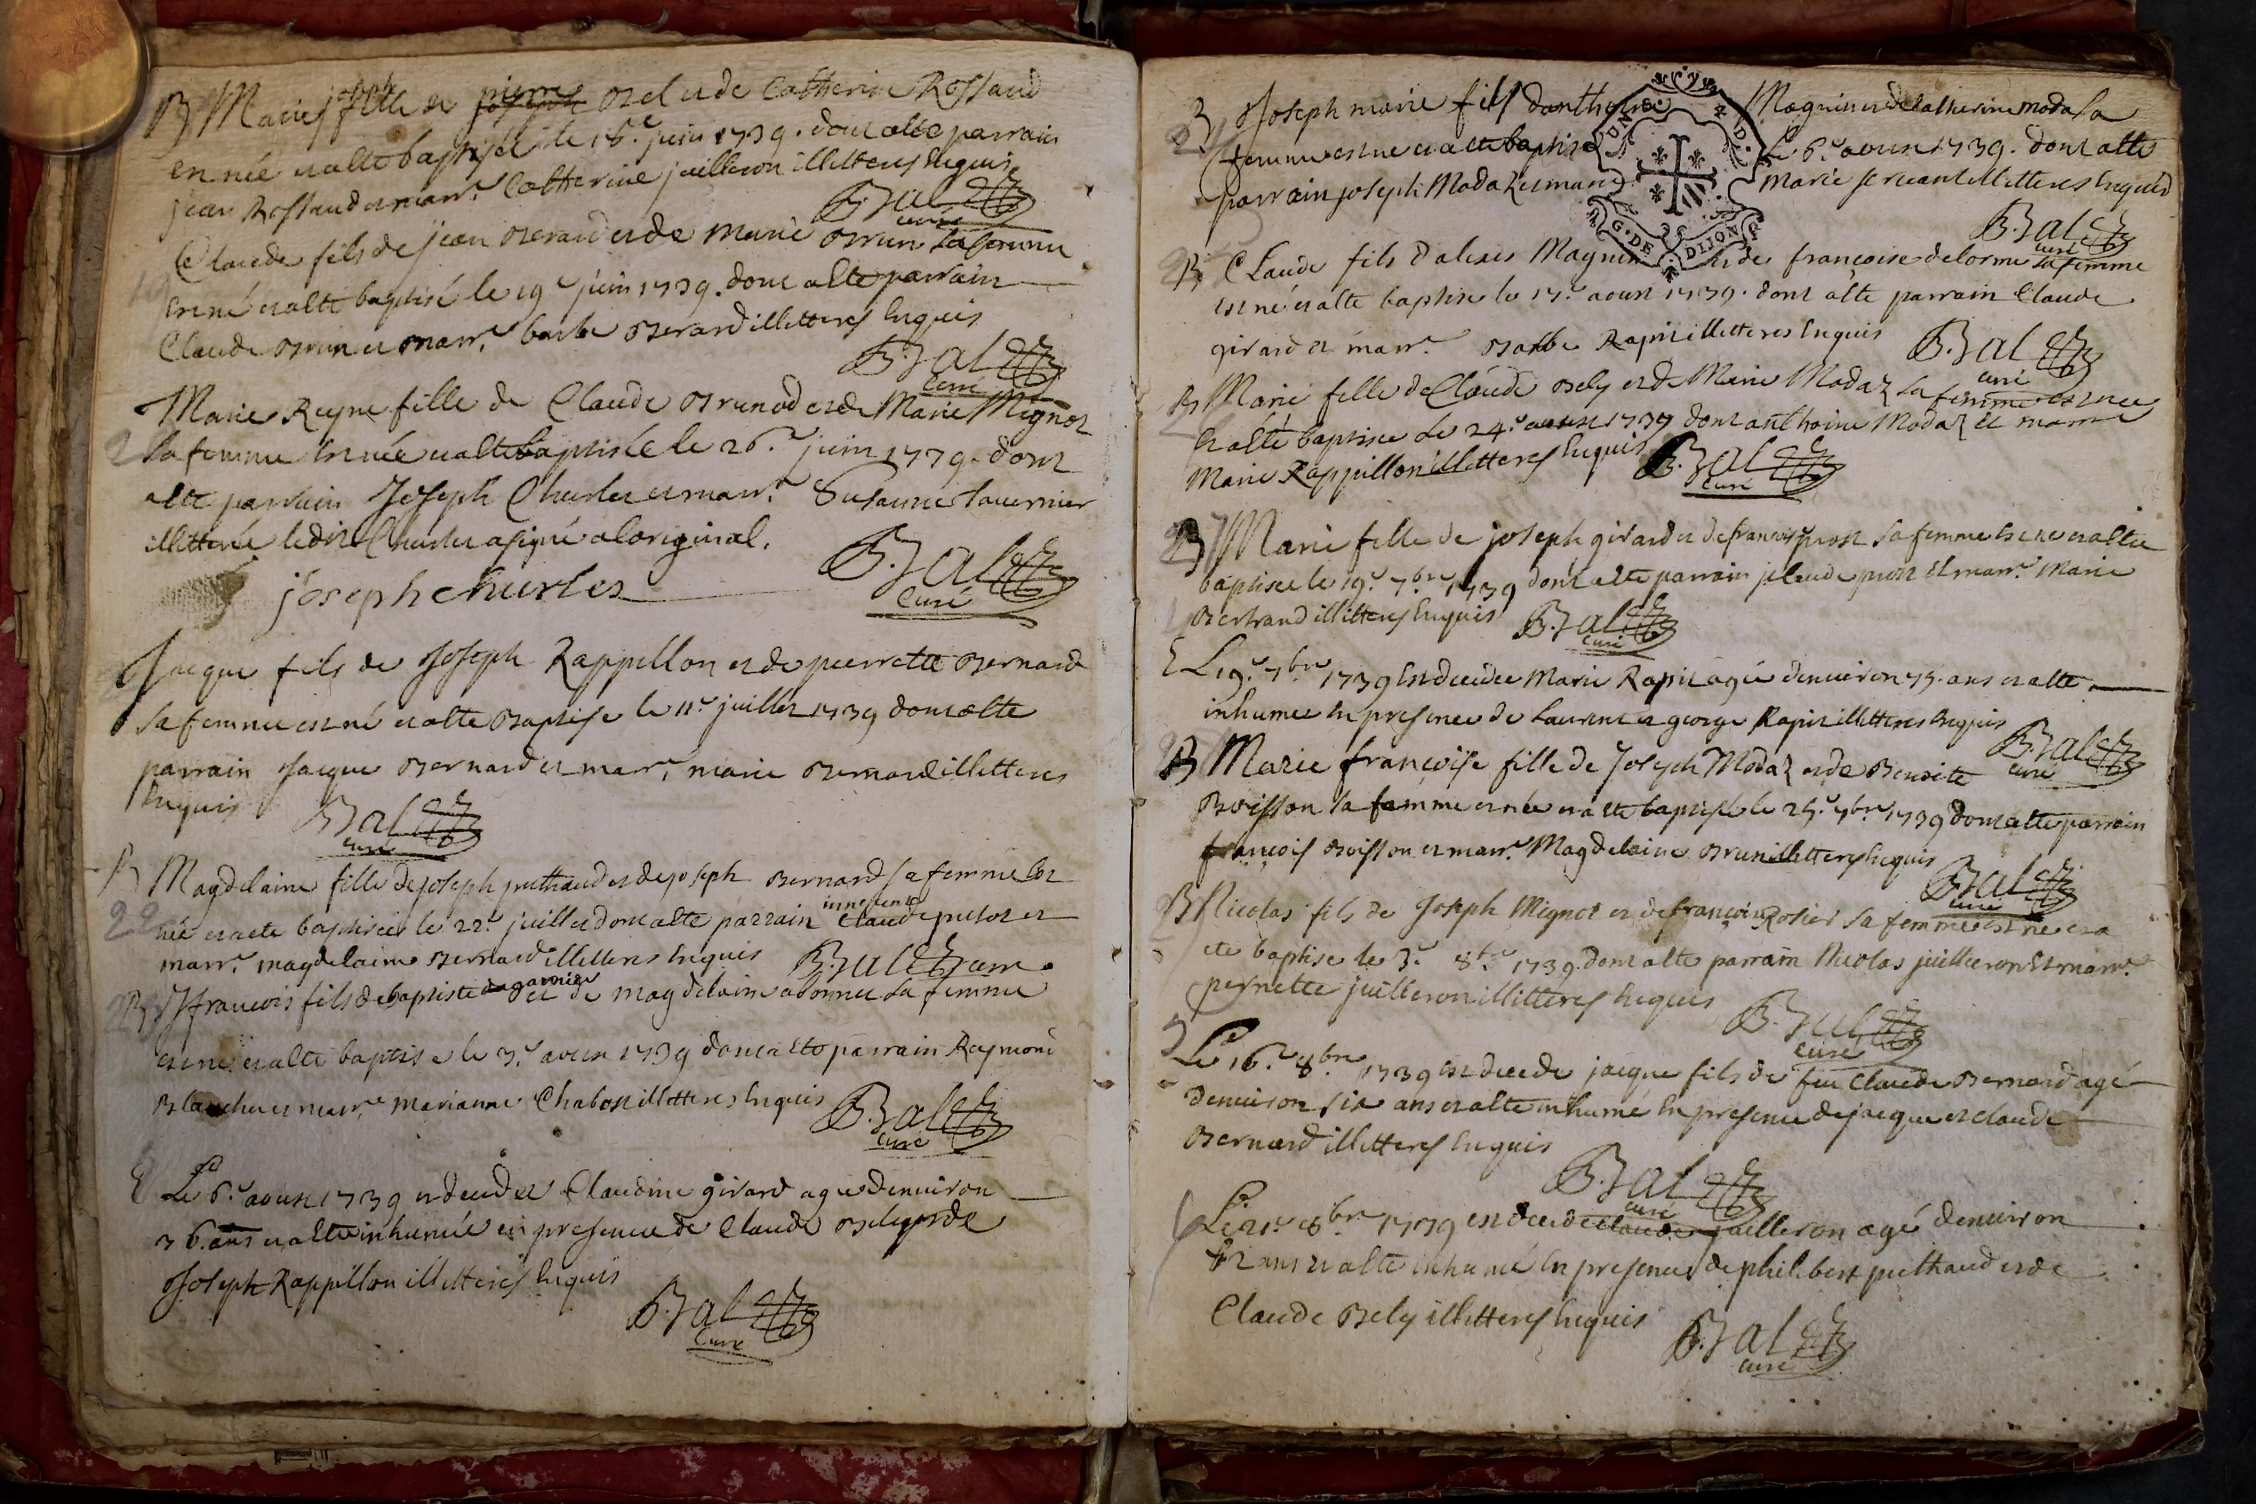 B Marie fille de pierre et de Catherine Rossaud
est née et a ette baptisée le 18.e juin 1739. dont a ette parrain
jean Rossaud et marr.e Catherine juilleron illitteres Enquis
B. Bal curé
Claude fils de jean Berard et de Marie Brun sa femme
Est né et a ette baptisé le 19.e juin 1739. dont a ette parrain
Claude Brun et marr.e barbe Berard illitteres Enquis
B. Bal Curé
Marie Reyne fille de Claude Brunod et de Marie Mignot
sa femme Est née et a ette baptisée le 26.e juin 1739. dont
a ette parrain Joseph Churlet et marr.e Susanne tavernier
illitterée ledit Churlet a signé a loriginal.
joseph churlet
B. Bal Curé
Jacque fils de Joseph Rappillon et de pierrette Bernard
sa femme est né et a ette Baptise le 11.e juillet 1739 dont a ette
parrain Jacque Bernard et marr.e marie Bernard illitteres
Enquis
Bal curé
B Magdelaine fille de joseph puthaud et de joseph Bernard sa femme Est
née et a ete baptisée le 22.e juillet dont a ette parrain Claude et
marr.e magdelaine Bernard illitteres Enquis B. Bal curé
B francois fils de baptiste et de magdelaine sa femme
est né et a ette baptisé le 3.e aoust 1739 dont a ette parrain Raymond
Blanche et marr.e marianne Chabost illitteres Enquis
B. Bal Curé
E Le 6.e aoust 1739 est decedée Claudine girard agée denviron
36. ans et a ette inhumée en presence de Claude Bely et de
Joseph Rappillon illitteres Enquis
B. Bal Curé
B Joseph marie fils danthoine Magnin et de Catherine Modaz sa
femme est né et a ette baptisé Le 6.e aoust 1739. dont a ette
parrain joseph Modaz et marr.e Marie illitteres Enquis
G. DE DIJON
B. Bal curé
B Claude fils dalexis Magnin et de francoise delorme sa femme
est né et a ette baptise le 17.e aoust 1739. dont a ette parrain Claude
girard et marr.e Barbe Rapit illitteres Enquis
B. Bal curé
B Marie fille de Claude Bely et de Marie Modaz sa femme est née
Et a ette baptisee Le 24.e aoust 1739 dont anthoine Modaz et marre
Marie Rappillon illitteres Enquis B. Bal Curé
B Marie fille de joseph girard et de francoise prost sa femme Est ne et a ette
baptisee le 19.e 7.bre 1739 dont a ette parrain jclaude prost Et marr.e Marie
Bertrand illitteres Enquis B. Bal Curé
E Le 19.e 7.bre 1739 Est decedee Marie Rapit agée denviron 75. ans et a ette
inhumee En presence de Laurent et george Rapit illitteres Enquis
B. Bal curé
B Marie françoise fille de Joseph Modaz et de Benoite
Boisson sa femme est née et a ette baptisée le 25.e 7.bre 1739 dont a ette parrain
françois Boisson et marr.e Magdelaine Brun illitteres Enquis
B. Bal curé
B Nicolas fils de Joseph Mignot et de françoise Rosier sa femme est né et a
ete baptise le 3.e 8.bre 1739. dont a ette parrain Nicolas juilleron Et marr.e
pernette juilleron illitteres Enquis
B. Bal Curé
Le 16.e 8.bre 1739 est decede jacque fils de feu Claude Bernard agé
denviron six ans et a ette inhumé En presence de jacque et claude
Bernard illitteres Enquis
B. Bal curé
Le 21.e 8.bre 1739 est decede Claude juilleron agé denviron
ans et a ette inhumé En presence de philibert puthaud et de
Claude Bely illitteres Enquis
B. Bal curé